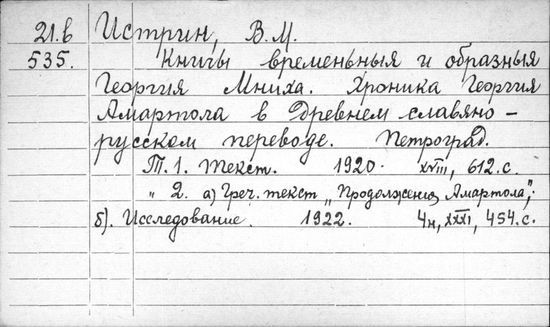 21.в Истрин, В.М.
535. Книгы временьныя и образныя
Георгия Мниха. Хроника Георгия
Амартола в древнем славяно-
русском переводе. Петроград.
Т. 1. Текст. 1920. XVIII, 612.с.
" 2. а) Греч. текст „Продолжения Амартола",
б). Исследование. 1922. 4н, XXXI, 454.с.